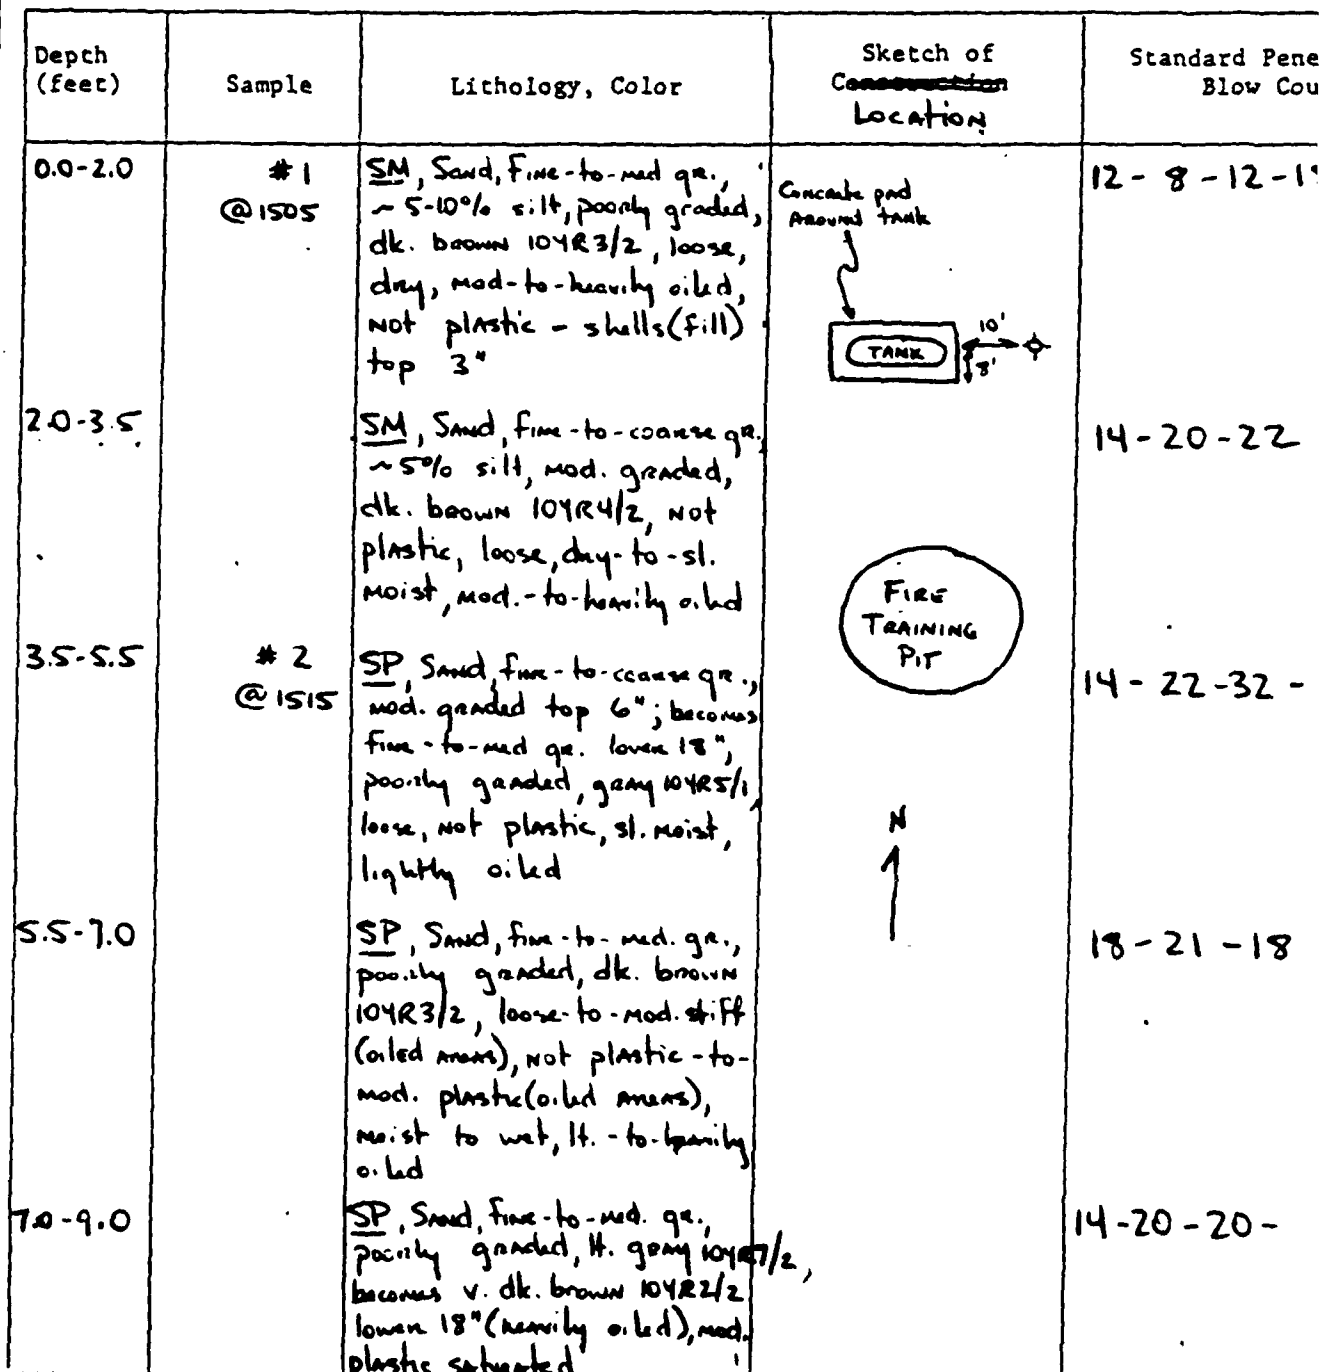 Depth
(feet)
Sample
Lithology, Color
Sketch of
Construction
LOCATION
Standard Pene
Blow Cou
0.0-2.0
#1
@1505
SM, Sand, Fine-to-med gr.,
~ 5-10% silt, poorly graded,
dk. brown 10YR3/2, loose,
dry, mod-to-heavily oiled,
Not plastic - shells (fill)
top 3"
Concrete pad
Around tank
TANK
10'
8'
12 - 8 - 12 - 1
2.0-3.5
SM, Sand, Fine-to-coarse gr.
~5% silt, mod. graded,
dk. brown 10YR4/2, Not
plastic, loose, dry-to-sl.
Moist, mod.-to-heavily oiled
14 - 20 - 22
FIRE
TRAINING
PIT
3.5-5.5
#2
@1515
SP, Sand, fine-to-coarse gr.,
mod. graded top 6"; becomes
fine-to-med gr. lower 18",
poorly graded, gray 10YR5/1,
loose, Not plastic, sl. Moist,
lightly oiled
14 - 22 - 32 -
N
5.5-7.0
SP, Sand, fine-to-med. gr.,
poorly graded, dk. brown
10YR3/2, loose-to-mod. stiff
(oiled areas), Not plastic-to-
mod. plastic (oiled areas),
Moist to wet, lt.-to-heavily
oiled
18 - 21 - 18
7.0-9.0
SP, Sand, fine-to-med. gr.,
poorly graded, lt. gray 10YR7/2,
becomes v. dk. brown 10YR2/2
lower 18" (heavily oiled), mod.
plastic saturated
14 - 20 - 20 -